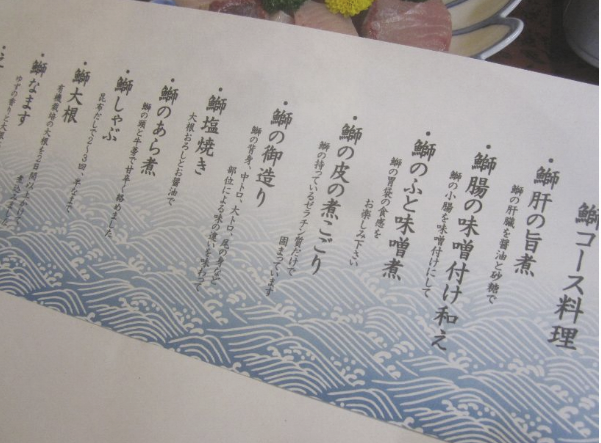 鰤コース料理
・鰤肝の旨煮
鰤の肝臓を醤油と砂糖で
・鰤腸の味噌付け和え
鰤の小腸を味噌付けにして
・鰤のふと味噌煮
鰤の胃袋の食感を
お楽しみ下さい
・鰤の皮の煮こごり
鰤の持っているゼラチン質だけで
固まっています
・鰤の御造り
鰤の背身、中トロ、大トロ、尾の身など
部位による味の違いを味わって
・鰤塩焼き
大根おろしとお醤油で
・鰤のあら煮
鰤の頭と牛蒡で甘辛く
・鰤しゃぶ
昆布だしで2〜3回、
・鰤大根
有機栽培の大根を
・鰤なます
ゆずの香りと大根